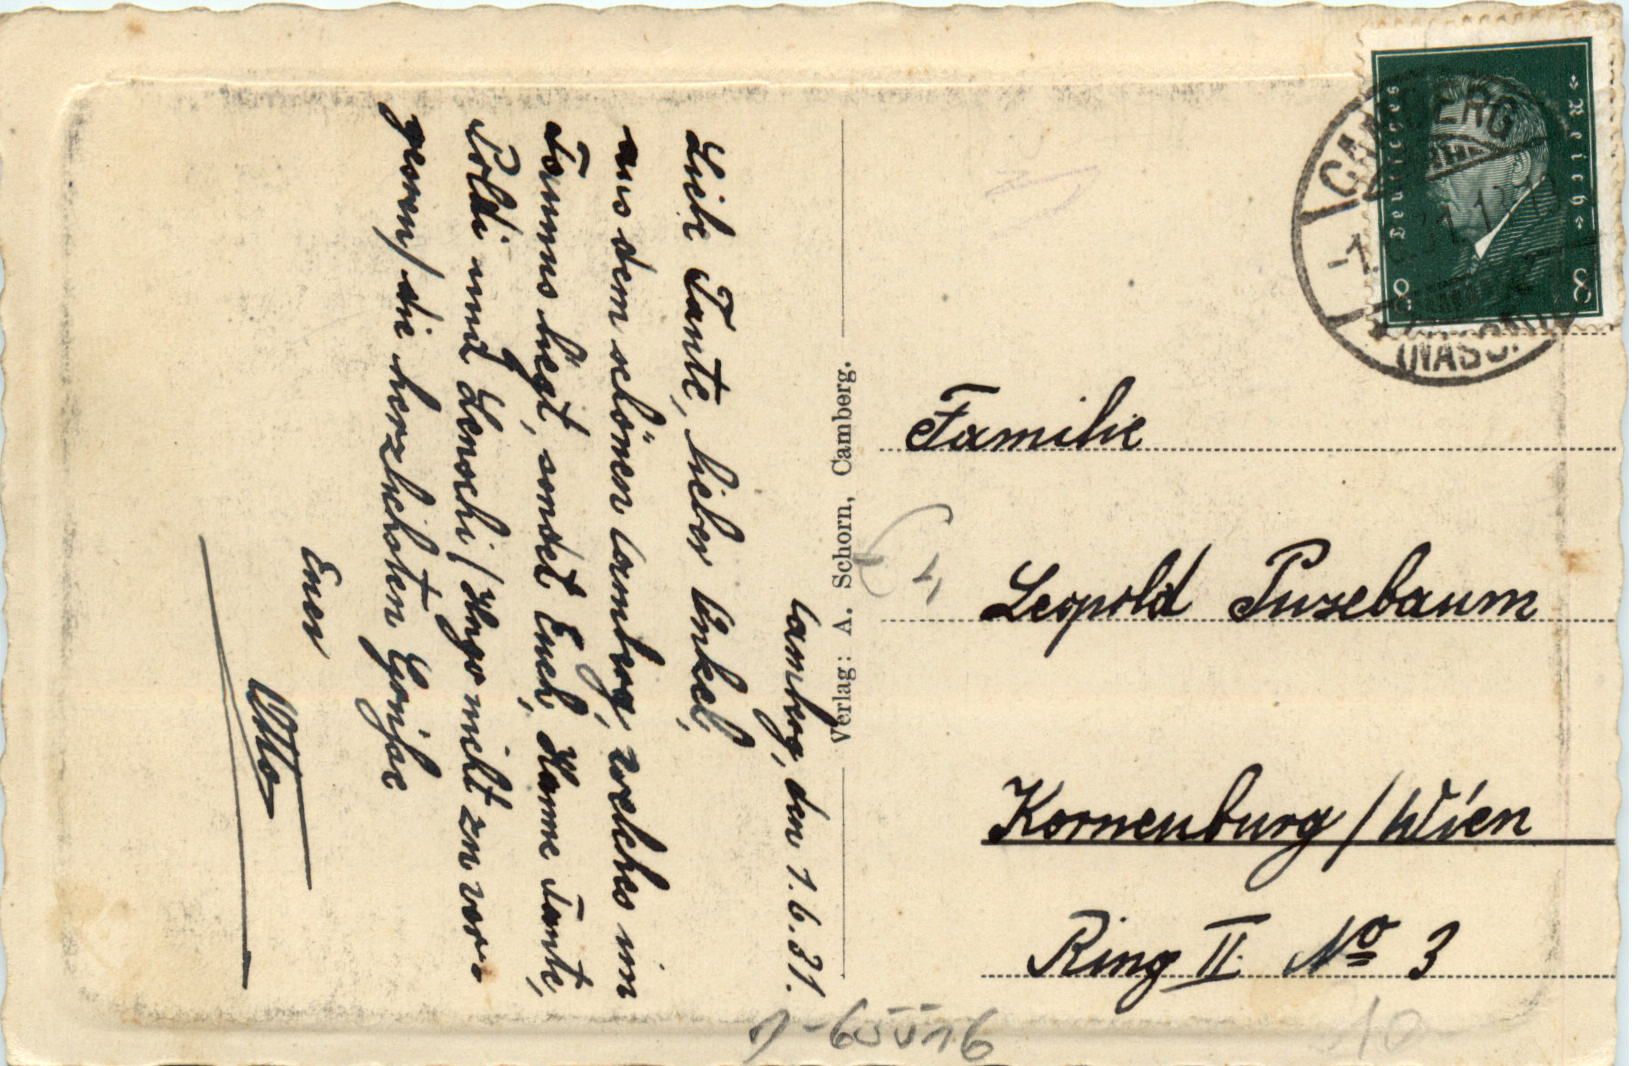 Camberg, den 1.6.31.
Liebe Tante, lieber Onkel,
aus dem schönen Camberg, welches im
Taunus liegt, sendet Euch, Hanne Tante,
Poldi und Lenschi / Hugo nicht zu ver-
gessen / die herzlichsten Grüsse
Euer
Otto
Verlag: A. Schorn, Camberg.
Deutsches Reich
8 8
CAMBERG
(NASSAU)
Familie
Leopold Puxebaum
Korneuburg / Wien
Ring II. No 3